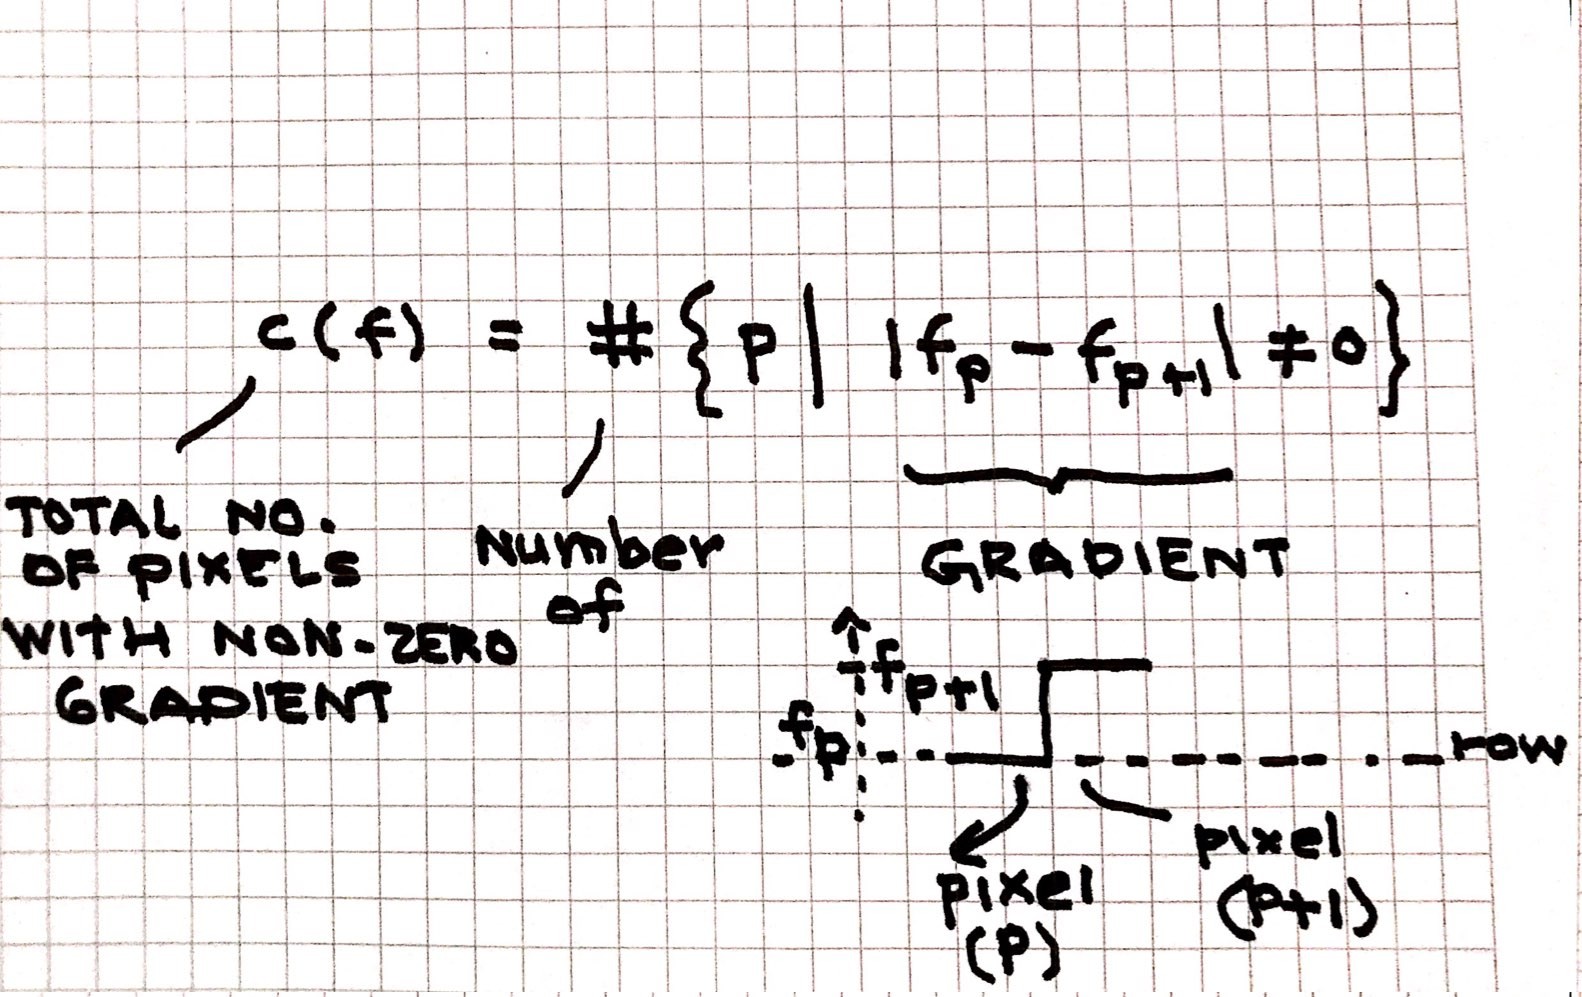 c(f) = #{p| |fₚ - fₚ₊₁| ≠ 0}
TOTAL NO.
OF PIXELS
WITH NON-ZERO
GRADIENT
Number
of
GRADIENT
fₚ₊₁
fₚ
row
pixel
(P)
pixel
(P+1)